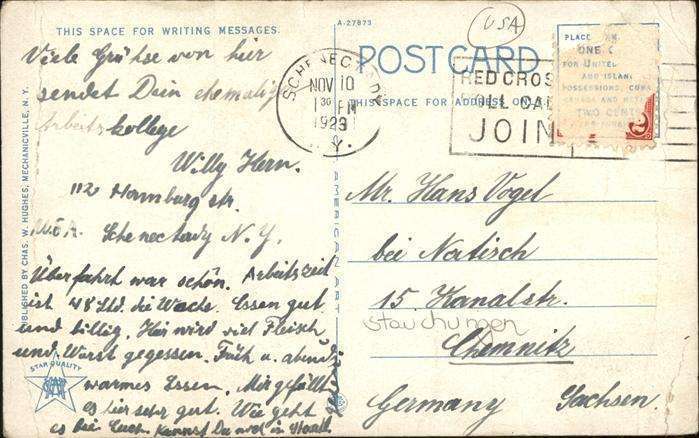 THIS SPACE FOR WRITING MESSAGES.
Viele Grüße von hier
sendet Dein ehemalig
Arbeitskollege
Willy Hern.
112 Hamburg str.
U.S.A. Schenectady N.Y.
Überfahrt war schön. Arbeitszeit
ist 48 Std. die Woche. Essen gut
und billig. Hier wird viel Fleisch
und Wurst gegessen. Früh u. abends
warmes Essen. Mir gefällt
es hier sehr gut. Wie geht
es bei Euch. Kannst Du noch in
PUBLISHED BY CHAS. W. HUGHES, MECHANICVILLE, N. Y.
STAR QUALITY
AMERICAN ART
A-27873
USA
POST CARD
THIS SPACE FOR ADDRESS ONLY
SCHENECTADY
NOV 10
1 30 PM
1923
N.Y.
RED CROSS
ROLL CALL
JOIN
PLACE
ONE C
FOR UNITED
AND ISLAND
POSSESSIONS, CUBA
CANADA AND MEXICO
TWO CENTS
2
Mr. Hans Vogel
bei Natisch
15. Kanalstr.
Stauchungen
Chemnitz
Germany Sachsen.